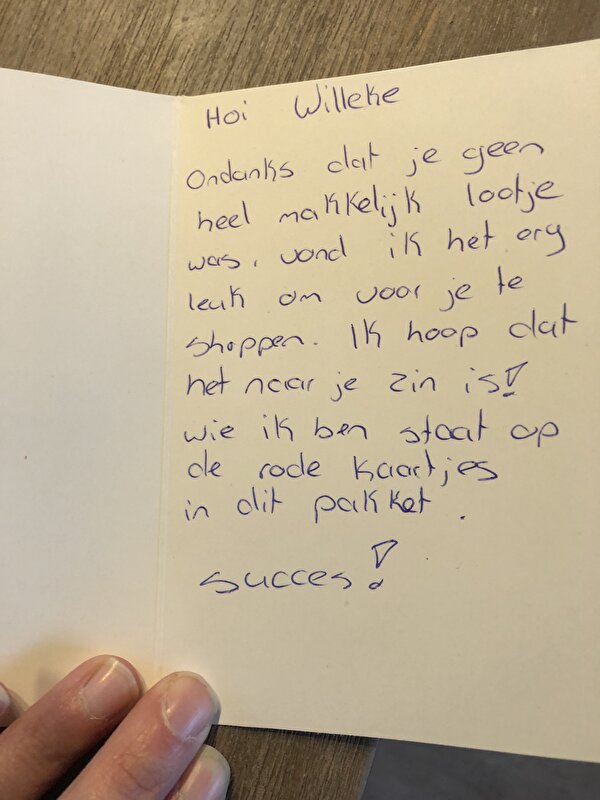 Hoi Willeke
Ondanks dat je geen
heel makkelijk lootje
was, vond ik het erg
leuk om voor je te
shoppen. Ik hoop dat
het naar je zin is!
wie ik ben staat op
de rode kaartjes
in dit pakket.
succes!